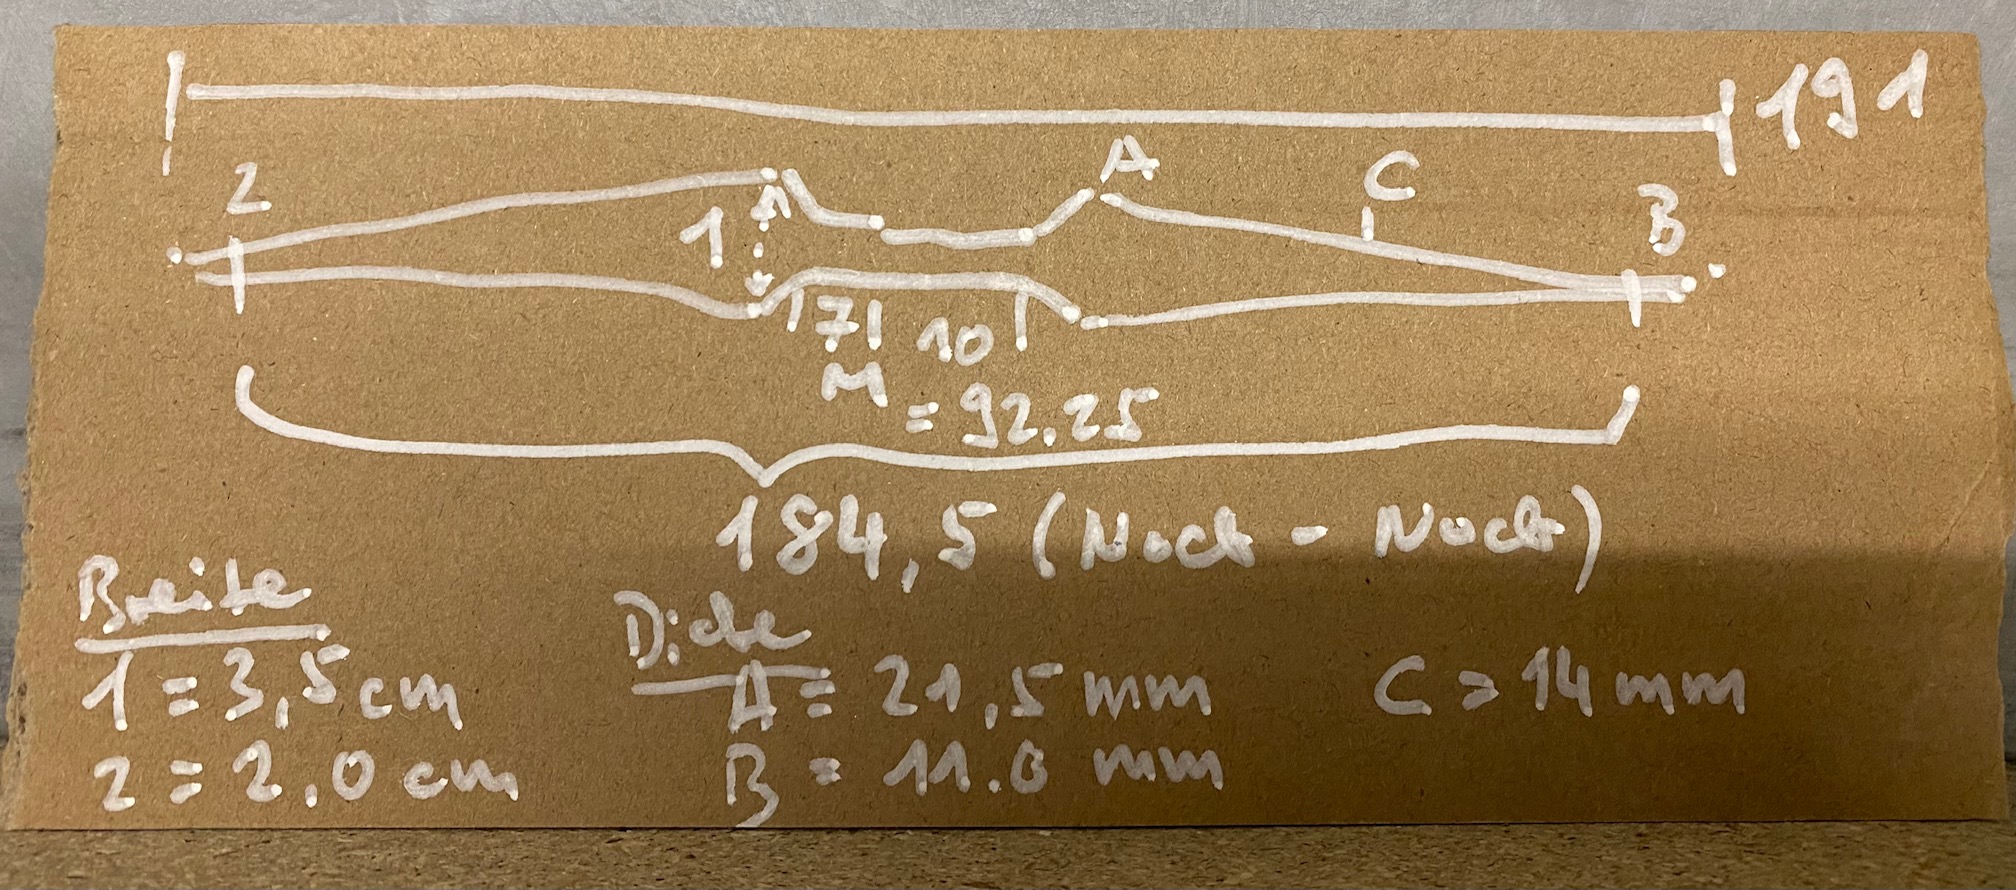 191
2
A
C
B
1
7
10
M
= 92.25
184,5 (Nock - Nock)
Breite
1 = 3,5 cm
2 = 2,0 cm
Dicke
A = 21,5 mm
B = 11.0 mm
C = 14 mm